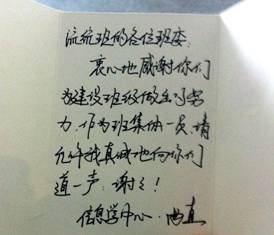 流统班的各位班委:
衷心地感谢你们
为建设班级做出的努
力,作为班集体一员,请
允许我真诚地向你们
道一声:谢谢!
信息学中心